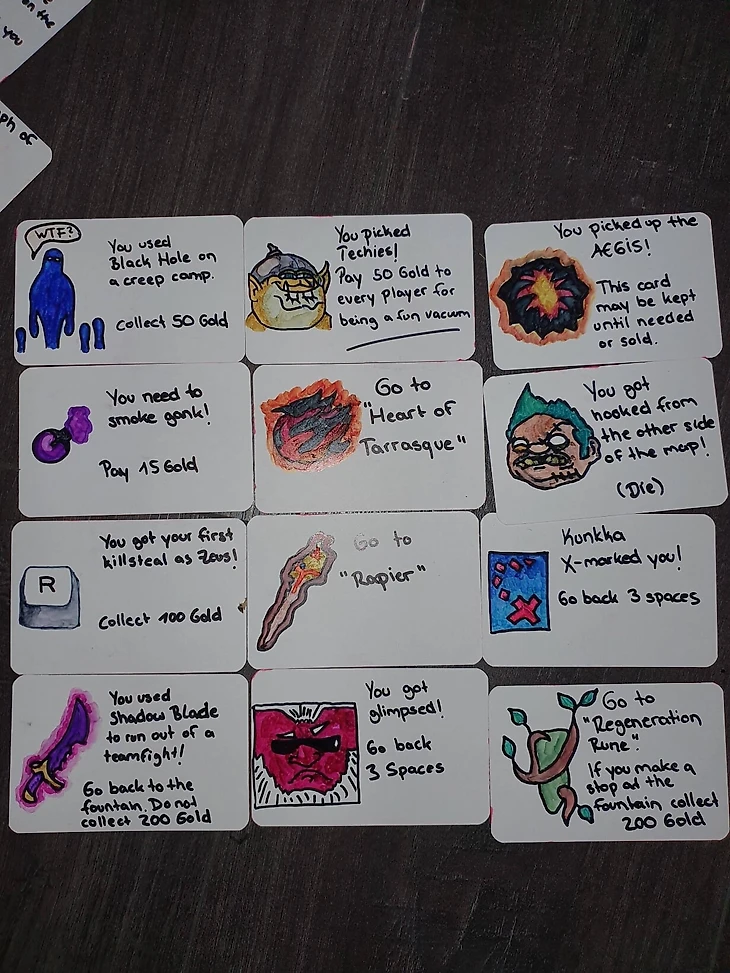 on the
you
ph of
WTF?
You used
Black Hole on
a creep camp.
Collect 50 Gold
You picked
Techies!
Pay 50 Gold to
every player for
being a fun vacum
You picked up the
AEGIS!
This card
may be kept
until needed
or sold.
You need to
smoke gank!
Pay 15 Gold
Go to
"Heart of
Tarrasque"
You got
hooked from
the other side
of the map!
(Die)
R
You got your first
killsteal as Zeus!
Collect 100 Gold
Go to
"Rapier"
Kunkka
X-marked you!
Go back 3 spaces
You used
Shadow Blade
to run out of a
teamfight!
Go back to the
fountain. Do not
collect 200 Gold
You got
glimpsed!
Go back
3 Spaces
Go to
"Regeneration
Rune".
If you make a
stop at the
fountain collect
200 Gold